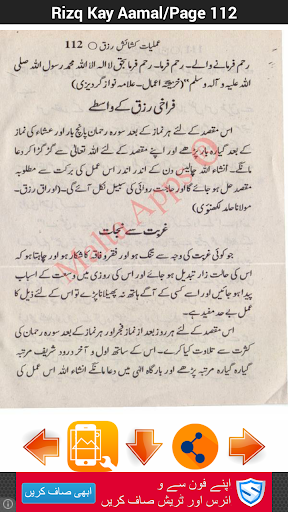 Rizq Kay Aamal/Page 112
عملیات کشائش رزق ○ 112
رحم فرمانے والے۔ رحم فرما۔ رحم فرما بحق لا الہ الا اللہ محمد رسول اللہ صلی
اللہ علیہ و آلہ وسلم" (خزینہ اعمال۔ علامہ نواز گردیزی)
فراخی رزق کے واسطے
اس مقصد کے لئے ہر نماز کے بعد سورہ رحمان پانچ بار اور عشاء کی نماز
کے بعد گیارہ بار پڑھے اور اپنے مقصد کے لئے اللہ تعالیٰ سے گڑگڑا کر دعا
مانگے۔ انشاء اللہ چالیس دن کے اندر اندر اس عمل کی برکت سے مطلوبہ
مقصد حل ہو جائے گا اور حاجت روائی کی سبیل نکل آئے گی۔ (اوراق رزق۔
مولانا حامد لکھنوی)
غربت سے نجات
جو کوئی غربت کی وجہ سے تنگ ہو اور فقر و فاقہ کا شکار ہو اور چاہتا ہو کہ
اس کی حالت زار تبدیل ہو جائے اور اس کی روزی میں وسعت کے اسباب
پیدا ہو جائیں اور اسے کسی کے آگے ہاتھ نہ پھیلانا پڑے تو اس کے لئے ذیل کا
عمل بے حد مفید ہے۔
اس مقصد کے لئے ہر روز بعد از نماز فجر اور ہر نماز کے بعد سورہ رحمان کی
کثرت سے تلاوت کیا کرے۔ اس کے ساتھ اول و آخر درود شریف گیارہ
گیارہ مرتبہ پڑھے اور بارگاہ الٰہی میں دعا مانگے انشاء اللہ اس عمل کی
Malik Apps ©
اپنے فون سے و
ائرس اور ٹریش صاف کریں
ابھی صاف کریں